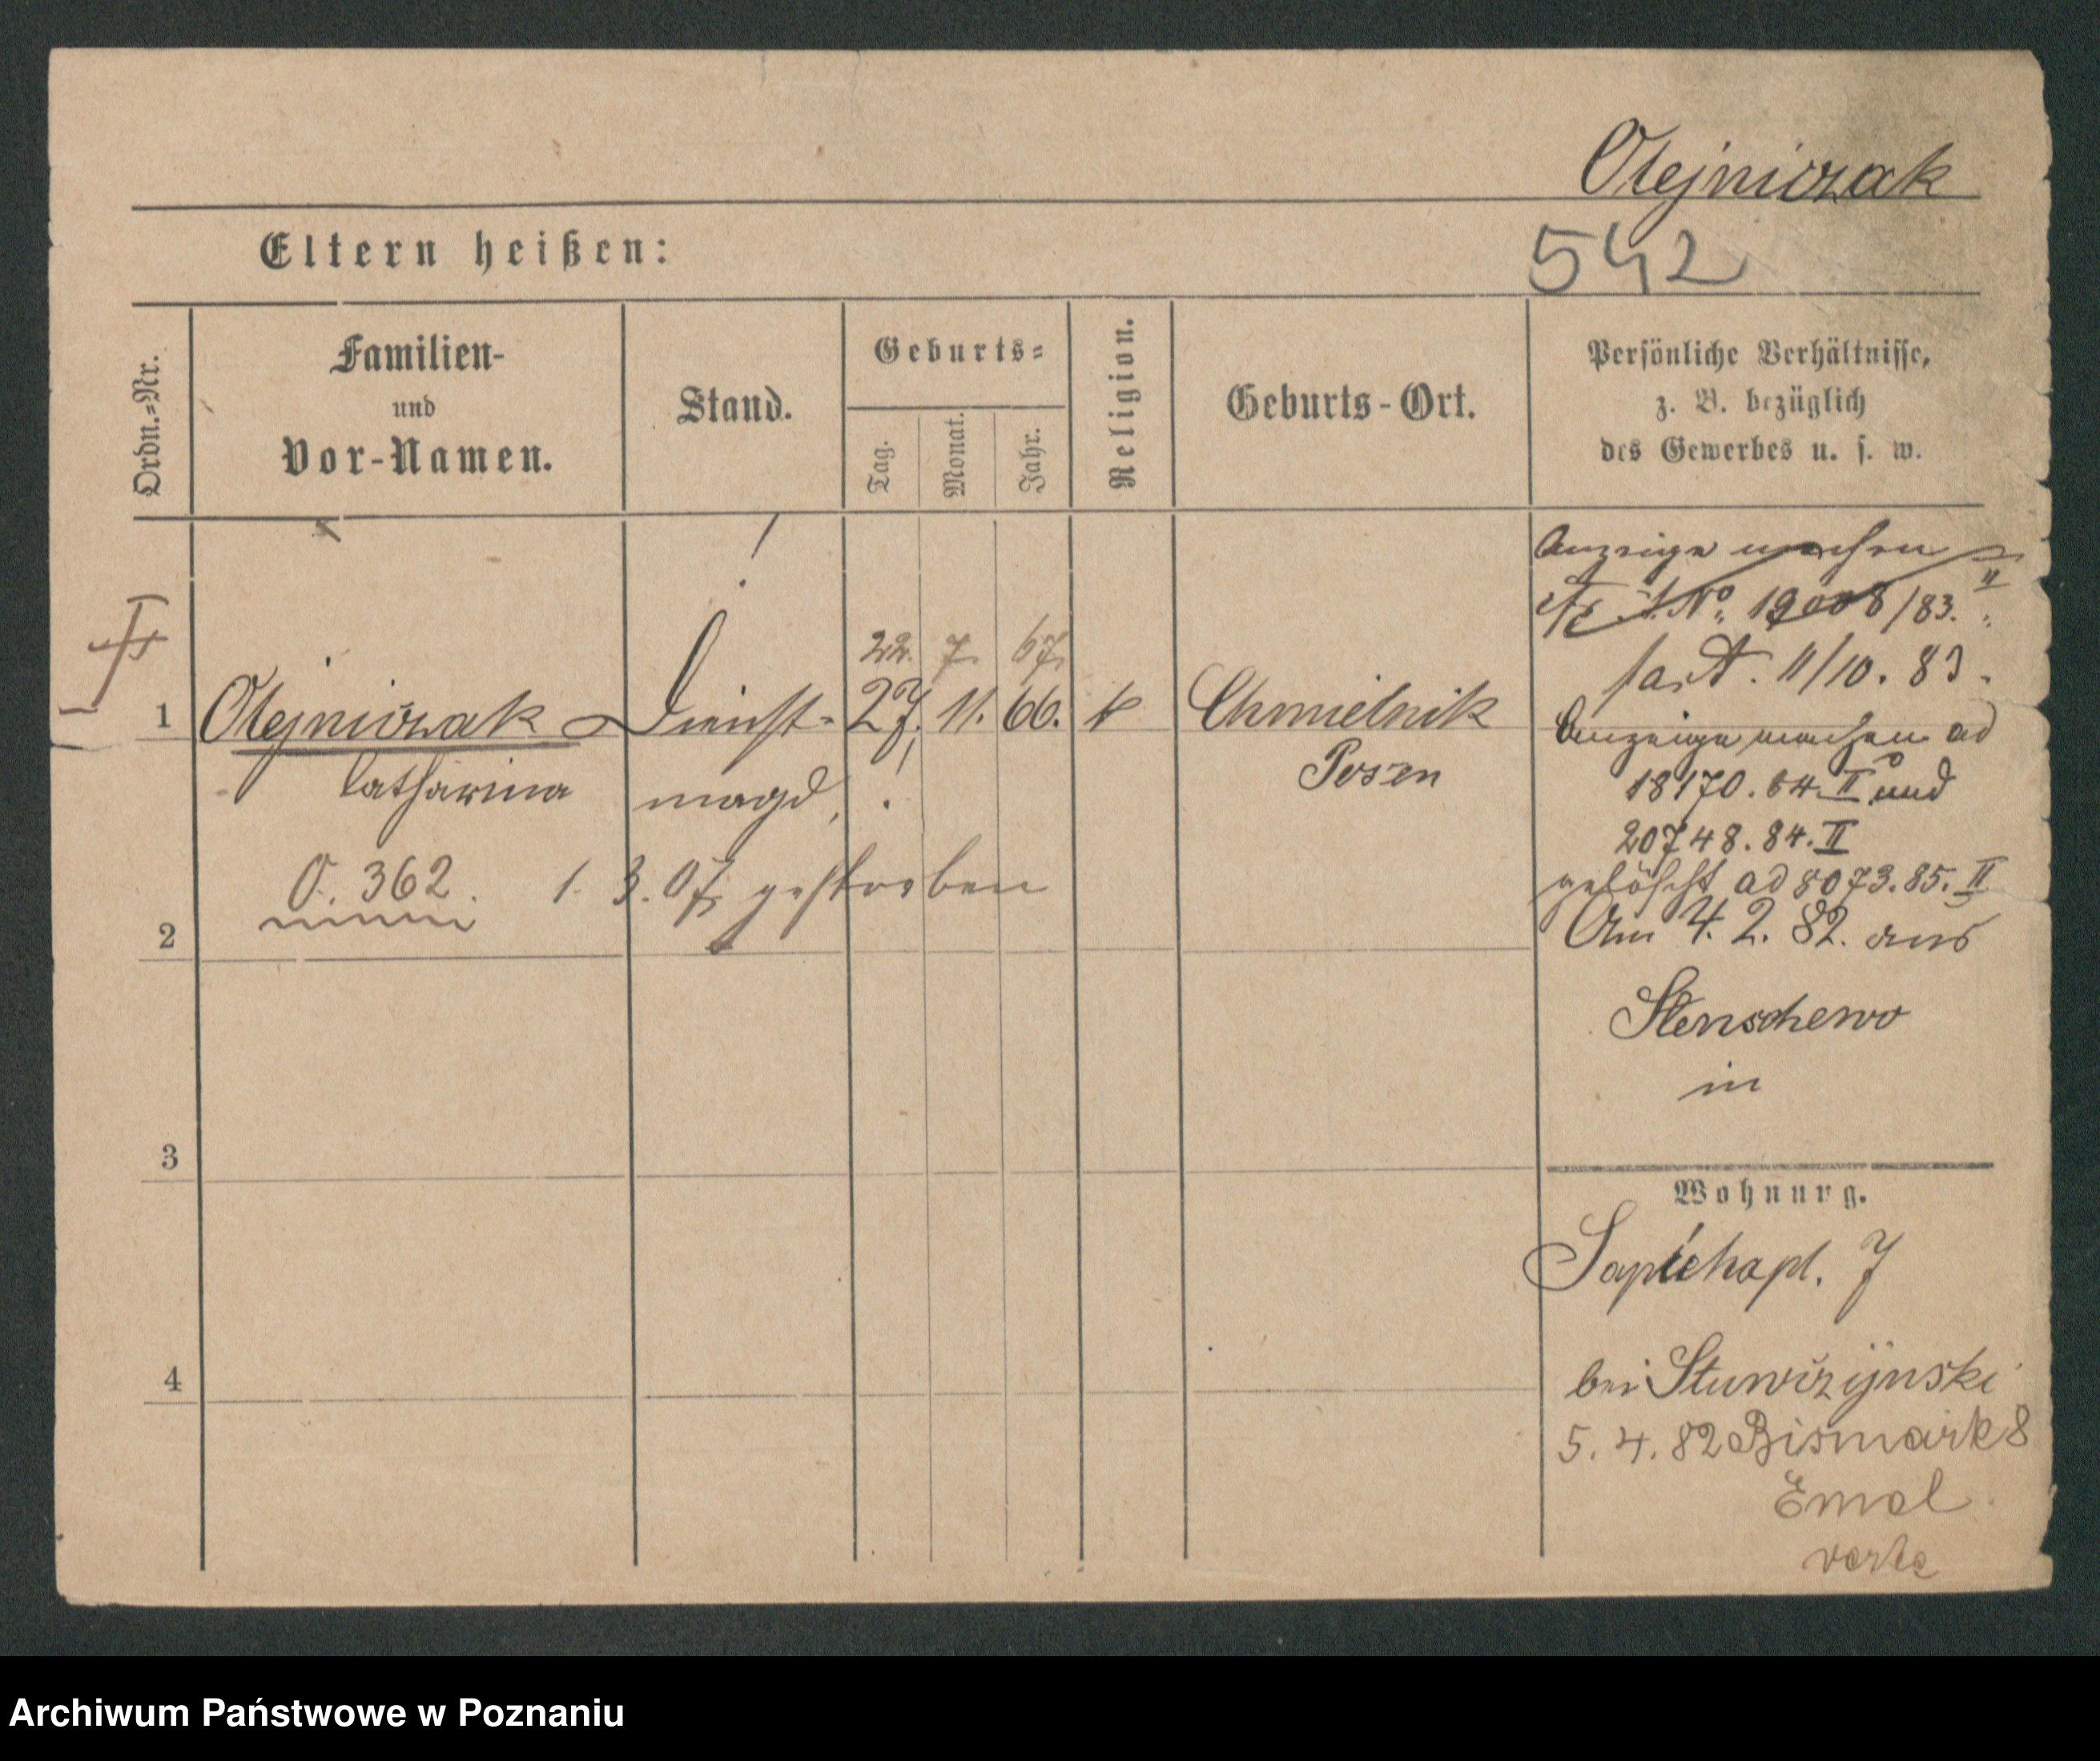 Olejniczak
Eltern heißen:
542
Ordn.=Nr.
Familien-
und
Vor-Namen.
Stand.
Geburts=
Tag.
Monat.
Jahr.
Religion.
Geburts-Ort.
Persönliche Verhältnisse,
z. B. bezüglich
des Gewerbes u. s. w.
Anzeige machen
J. No. 19008/83. II
11/10. 83.
22. 7. 67,
1 Olejniczak Dienst= 27. 11. 66. k Chmielnik
Catharina magd, ! Posen
Anzeige machen ad
18170. 84 II und
20748. 84. II
O. 362. 1. 3. 07, gestorben
gelöscht ad 8073. 85. II
2
Am 4. 2. 82. aus
Stenschewo
in
3
Wohnung.
Sapiehapl. 7
4
bei
5. 4. 82 Bismark 8
verte
Archiwum Państwowe w Poznaniu